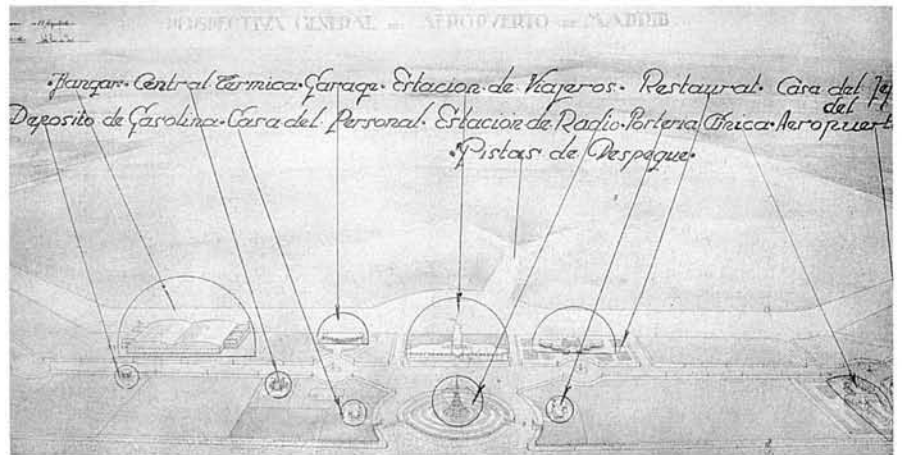 PERSPECTIVA GENERAL DEL AEROPVERTO DE MADRID
·Hangar· Central Termica·Garage· Estacion de Viajeros· Restaurat· Casa del
del
Deposito de Gasolina·Casa del Personal· Estacion de Radio·Porteria Clinica·Aeropuert
·Pistas de Despegue·